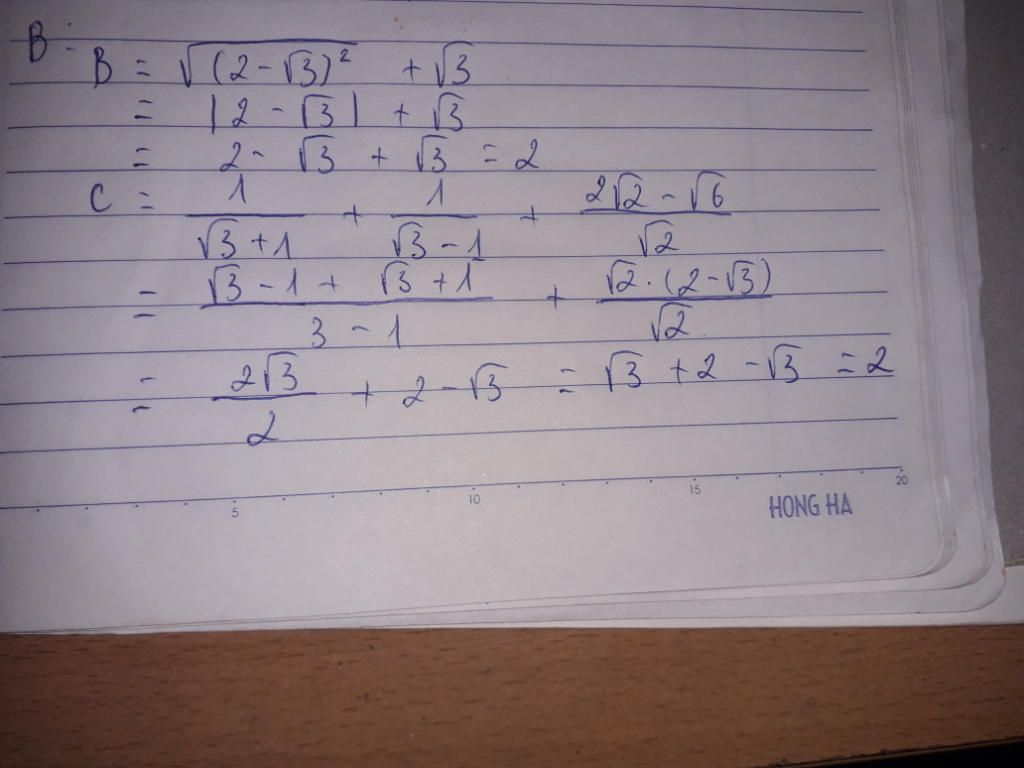 B.
B = √(2-√3)² + √3
= |2 - √3| + √3
= 2 - √3 + √3 = 2
C = 1/(√3+1) + 1/(√3-1) + (2√2-√6)/√2
= (√3-1+√3+1)/(3-1) + (√2.(2-√3))/√2
= 2√3/2 + 2-√3 = √3+2-√3 = 2
5 10 15 20
HONG HA